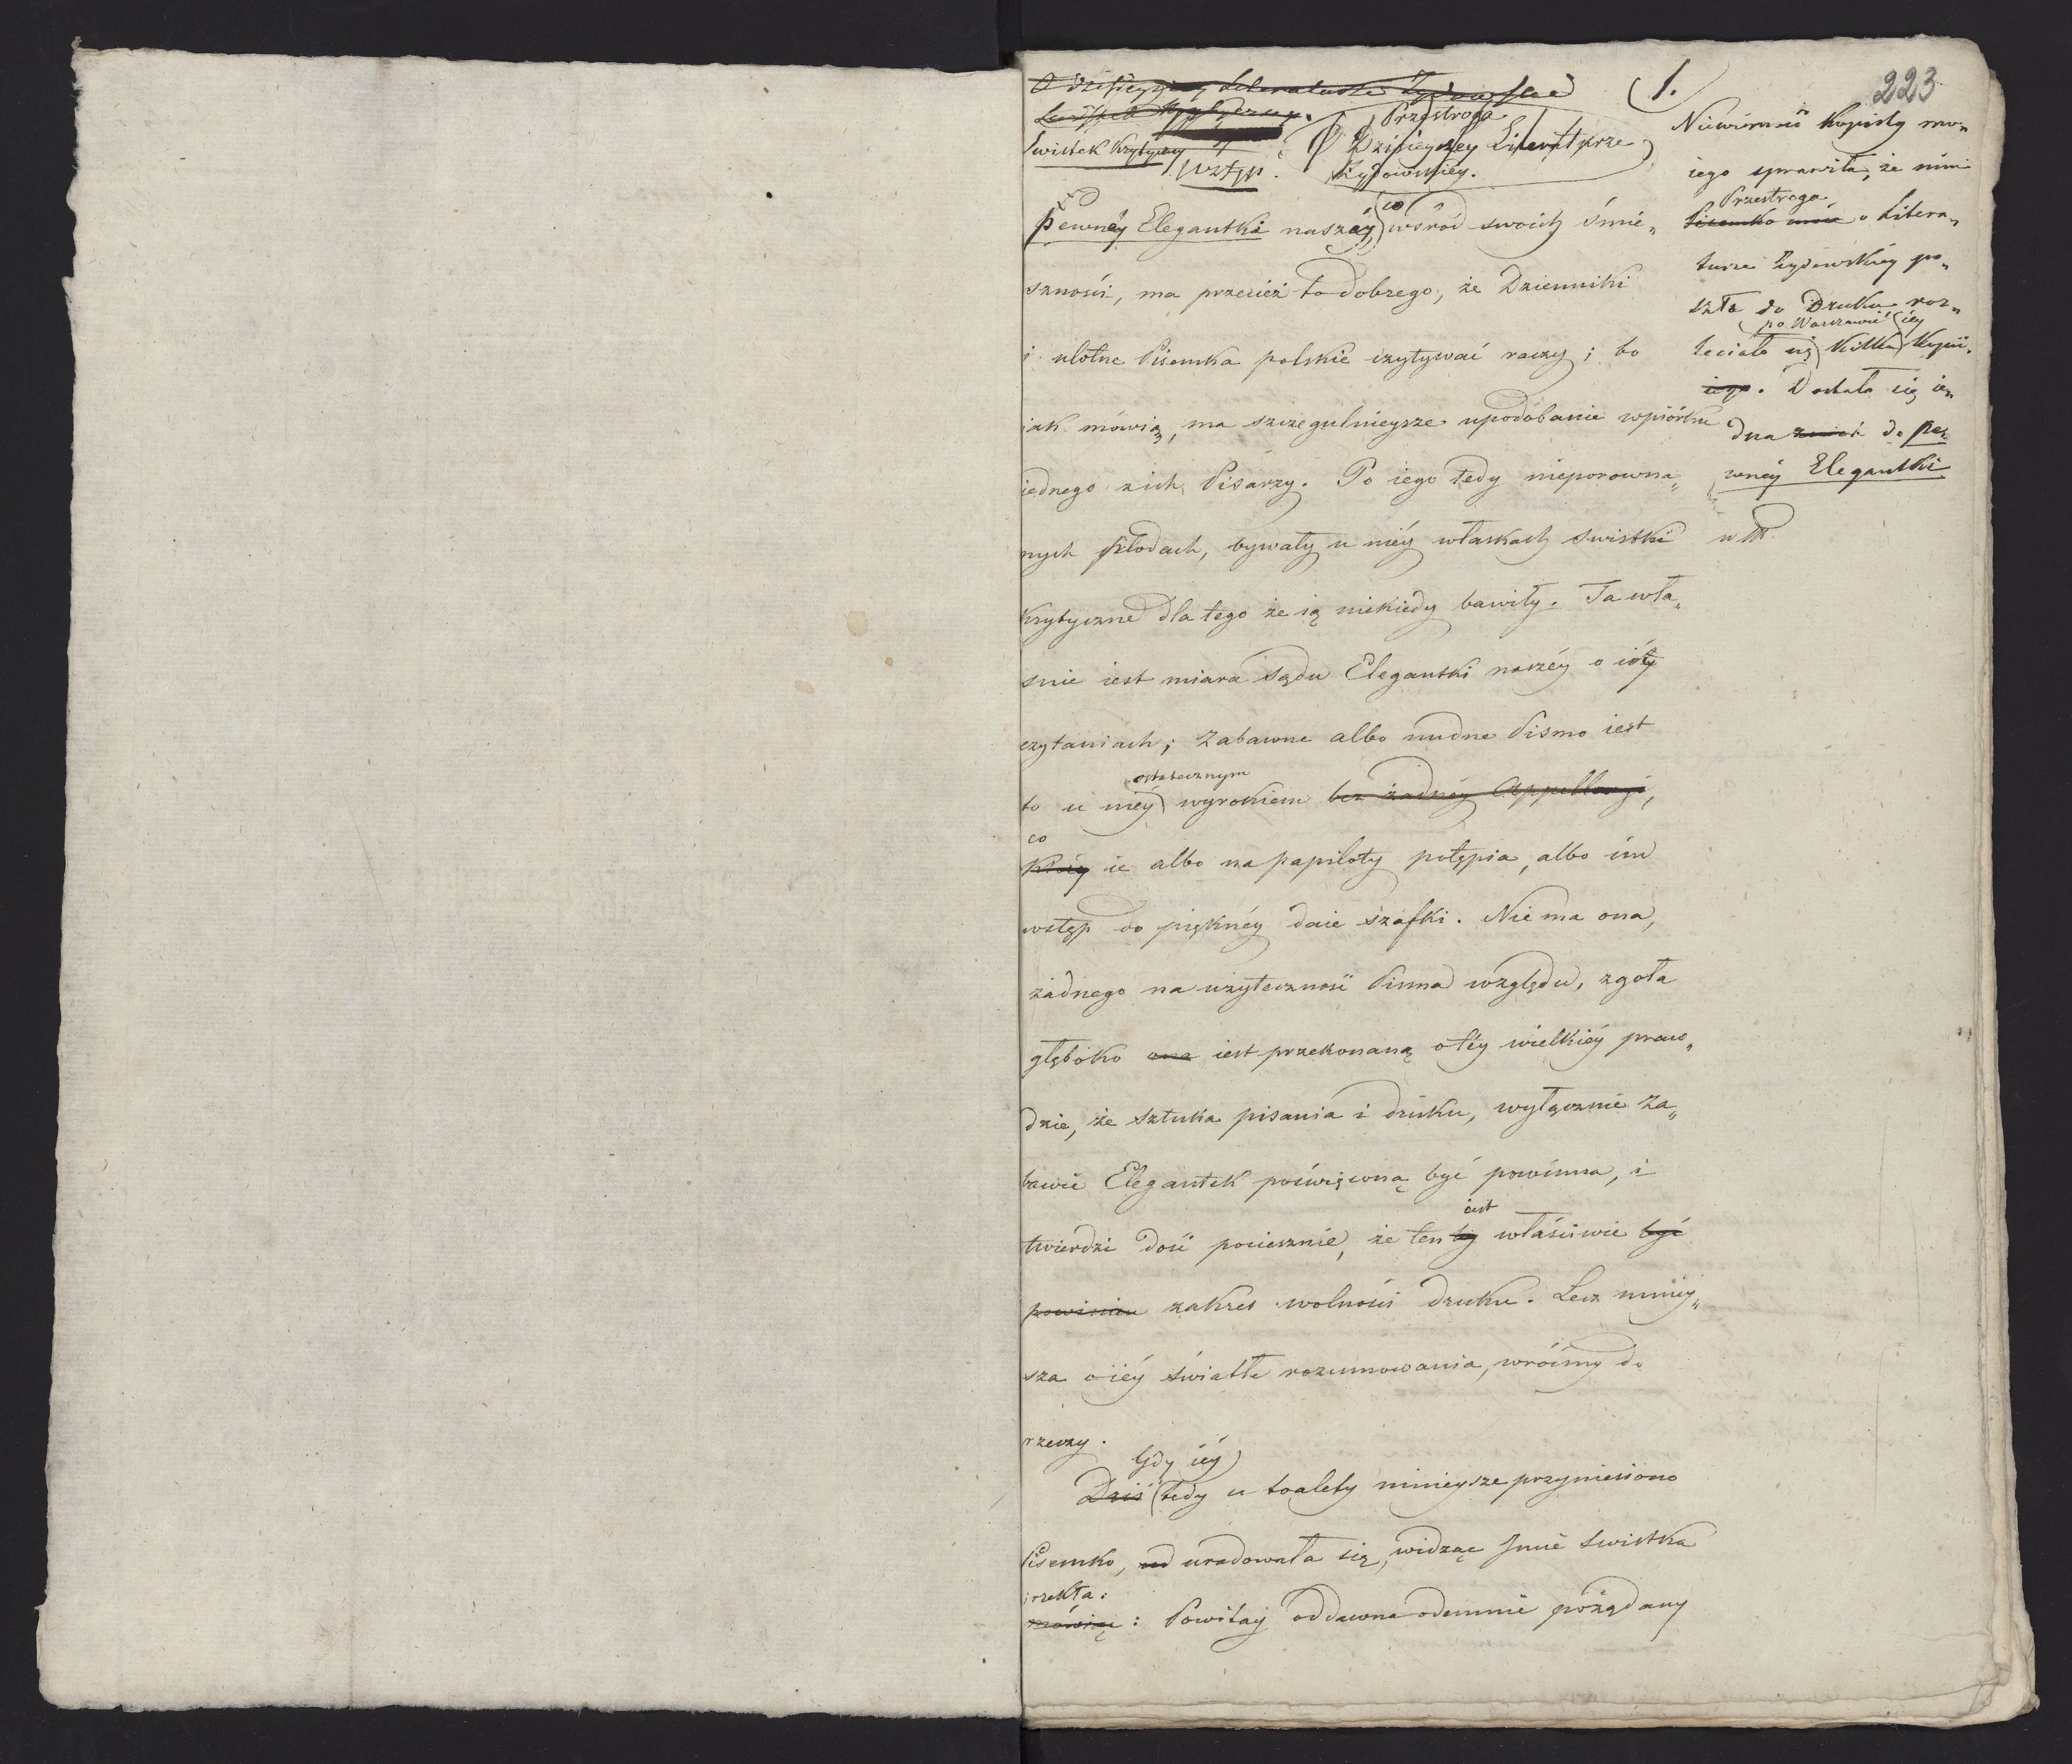 1.
223
O dzisieyszey Literaturze Żydowskiey
Świstek Krytyczny
Wstęp.
Przestroga
O Dzisieyszey Literaturze
Żydowskiey.
Pewnéy Elegantki naszéy, co wsród swoich śmie„
sznosci, ma przecież to dobrego, że Dzienniki
i ulotne Pisemka polskie czytywać raczy; bo
iak mówią, ma szczegulnieysze upodobanie w piórku
iednego z ich Pisarzy. Po iego tedy nieporowna„
nych płodach, bywały u niéy w łaskach swistki
Krytyczne dla tego że ią niekiedy bawiły. Ta wła„
snie iest miara sądu Elegantki naszéy o iéy
czytaniach; zabawne albo nudne Pismo iest
ostatecznym
to u niéy wyrokiem bez żadnéy Appellacyi,
co
Który ie albo na papiloty potępia, albo im
wstęp do pięknéy daie szafki. Nie ma ona,
żadnego na użyteczność Pisma względu, zgoła
głęboko ona iest przekonaną o téy wielkiéy praw„
dzie, że sztuka pisania i druku, wyłącznie za„
bawie Elegantek poświęconą być powinna, i
iest
twierdzi dość pociesznie, że ten by właściwie być
powinien zakres wolności druku. Lecz mniey„
sza o iéy światłe rozumowania, wróćmy do
rzeczy.
Gdy iéy
Dziś tedy u toalety ninieysze przyniesiono
Pisemko, ud uradowała się, widząc Imie Swistka
i rzekła:
mówiąc: Powitay oddawna odemnie pożądany
Niewierność Kopisty mo„
iego sprawiła, że nim
Przestroga
Pisemko moie o Litera„
turze Żydowskiéy po„
szła do Druku roz„
po Warszawie iéy
leciało się kilka Kopii.
iego. Dostała się ie„
dna z nich do pe„
wnéy Elegantki